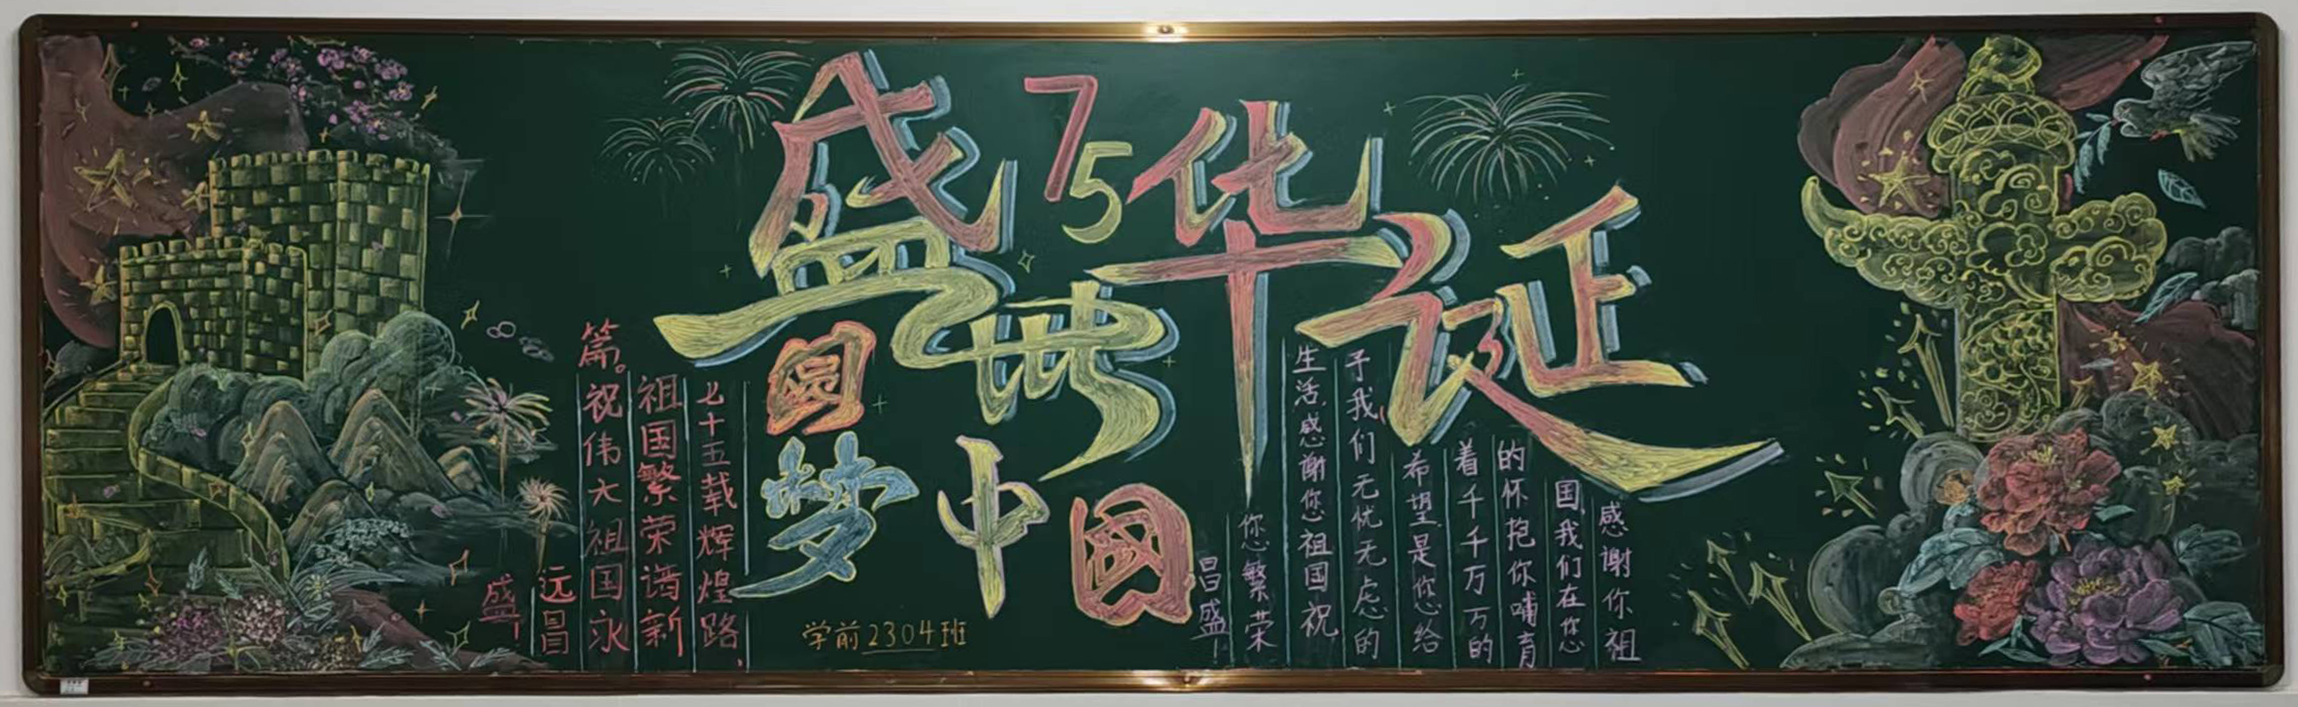 盛世华诞
75
圆梦中國
七十五载辉煌路，
祖国繁荣谱新
篇。祝伟大祖国永
远昌
盛
感谢你祖
国,我们在您
的怀抱你哺育
着千千万万的
希望是您给
予我们无忧无虑的
生活感谢您祖国祝
您繁荣
昌盛
学前2304班